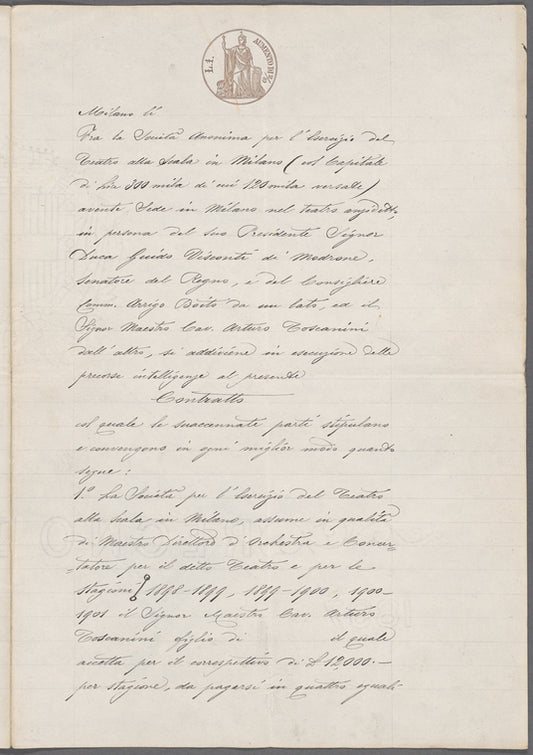 L. 1. AUMENTO DI 2/10
Milano lì
Fra la Società Anonima per l'Esercizio del
Teatro alla Scala in Milano (col Capitale
di Lire 300 mila di cui 120 mila versate)
avente Sede in Milano nel teatro anzidetto,
in persona del suo Presidente Signor
Duca Guido Visconti di Modrone,
Senatore del Regno, e del Consigliere
Comm. Arrigo Boito da un lato, ed il
Signor Maestro Cav. Arturo Toscanini
dall'altro, si addiviene in esecuzione delle
precorse intelligenze al presente
Contratto
col quale le suaccennate parti stipulano
e convengono in ogni miglior modo quanto
segue:
1.° La Società per l'Esercizio del Teatro
alla Scala in Milano, assume in qualità
di Maestro Direttore d'Orchestra e Concer=
=tatore per il detto Teatro e per le
stagioni 1898-1899, 1899-1900, 1900-
1901 il Signor Maestro Cav. Arturo
Toscanini figlio di il quale
accetta per il correspettivo di £ 12,000.—
per stagione, da pagarsi in quattro eguali